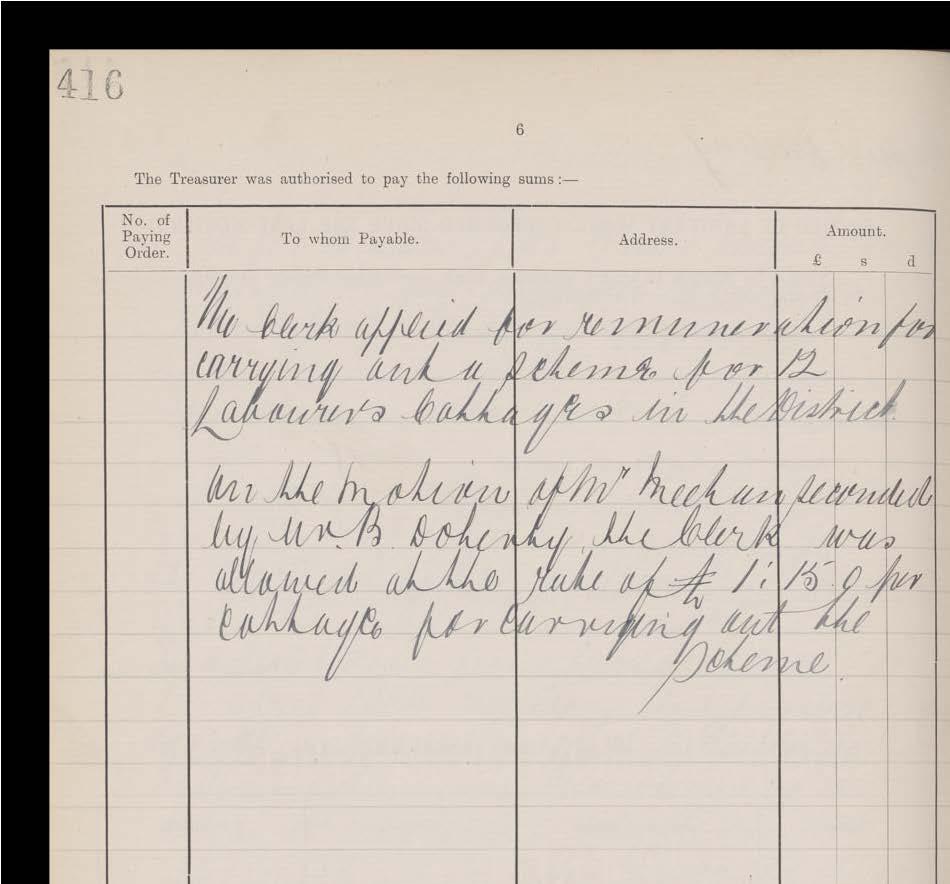 416
6
The Treasurer was authorised to pay the following sums :—
No. of
Paying
Order.
To whom Payable.
Address.
Amount.
£ s d
The Clerk applied for remuneration for
carrying out a scheme for 12
Labourers Cottages in the District.
On the Motion of Mr Meehan seconded
by Mr. B. Doherty, the Clerk was
allowed at the rate of £ 1: 15. 0 per
cottage for carrying out the
scheme.